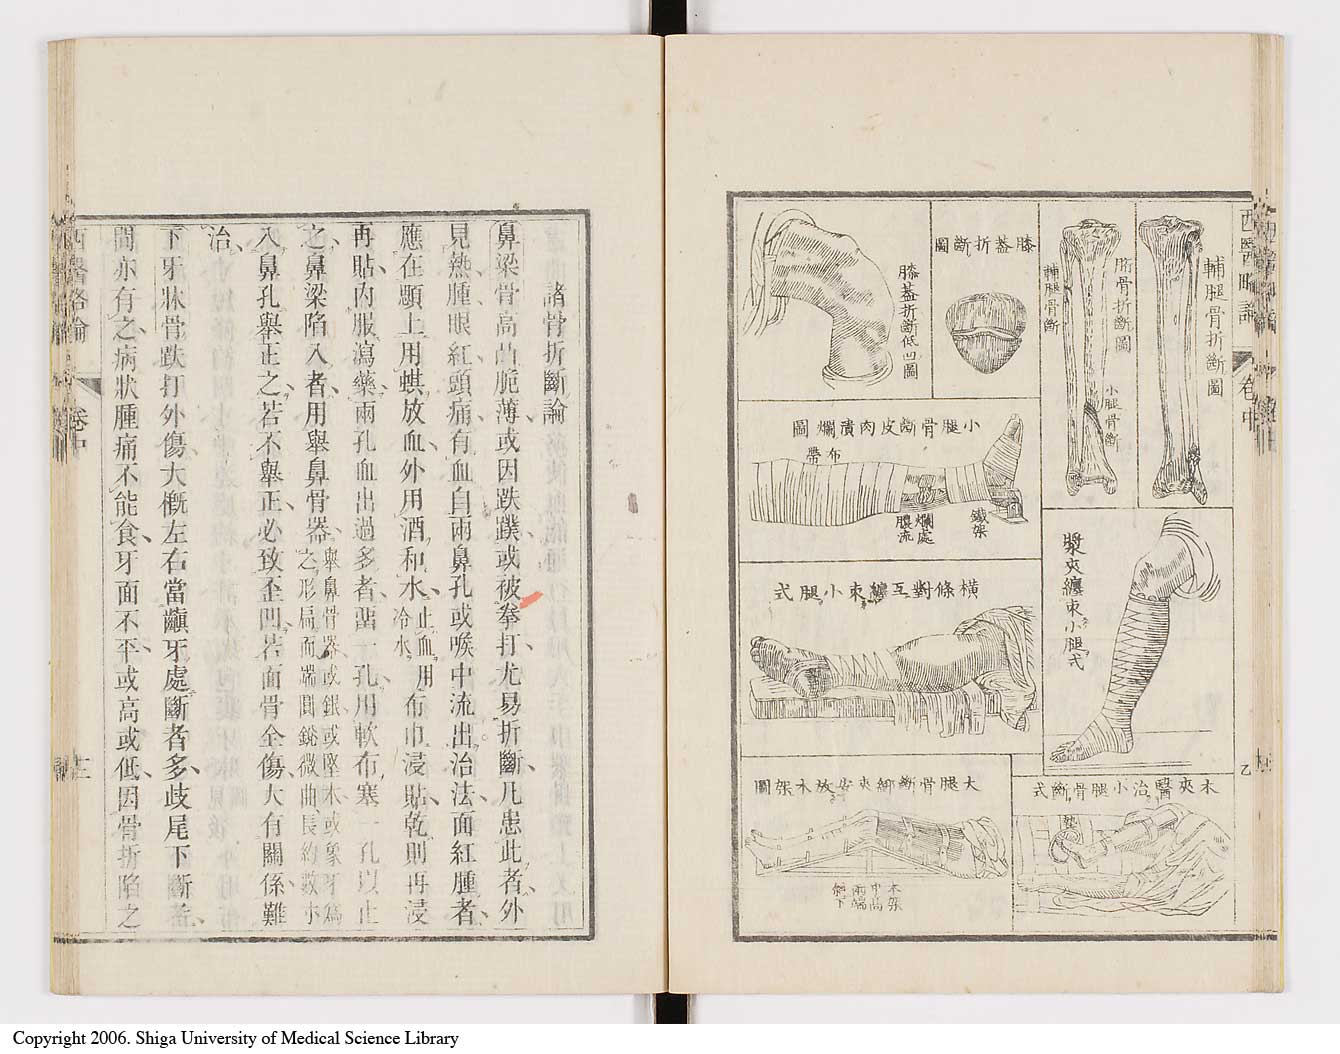 西醫略論
卷中
輔腿骨折斷圖
胻骨折斷圖
小腿骨斷
輔腿骨斷
膝葢折斷圖
膝葢折斷低凹圖
小腿骨斷皮肉潰爛圖
布帶
鐵架
爛處膿流
漿夾纏束小腿式
橫條對互纏束小腿式
木夾醫治小腿骨斷式
墊
大腿骨斷綁夾安放木架圖
木架
中高
兩端
低下
乙
諸骨折斷論
鼻梁骨高凸脆薄或因跌蹼或被拳打尤易折斷凡患此者外
見熱腫眼紅頭痛有血自兩鼻孔或喉中流出治法面紅腫者
應在顋上用蜞放血外用酒和水止血用冷水布巾浸貼乾則再浸
再貼內服瀉藥兩孔血出過多者留一孔用軟布塞一孔以止
之鼻梁陷入者用舉鼻骨器舉鼻骨器或銀或堅木或象牙為之形扁而端圓銳微曲長約數寸
入鼻孔舉正之若不舉正必致歪凹若面骨全傷大有關係難
治
下牙牀骨跌打外傷大概左右當齻牙處斷者多歧尾下斷葢
間亦有之病狀腫痛不能食牙面不平或高或低因骨折陷之
西醫略論
卷中